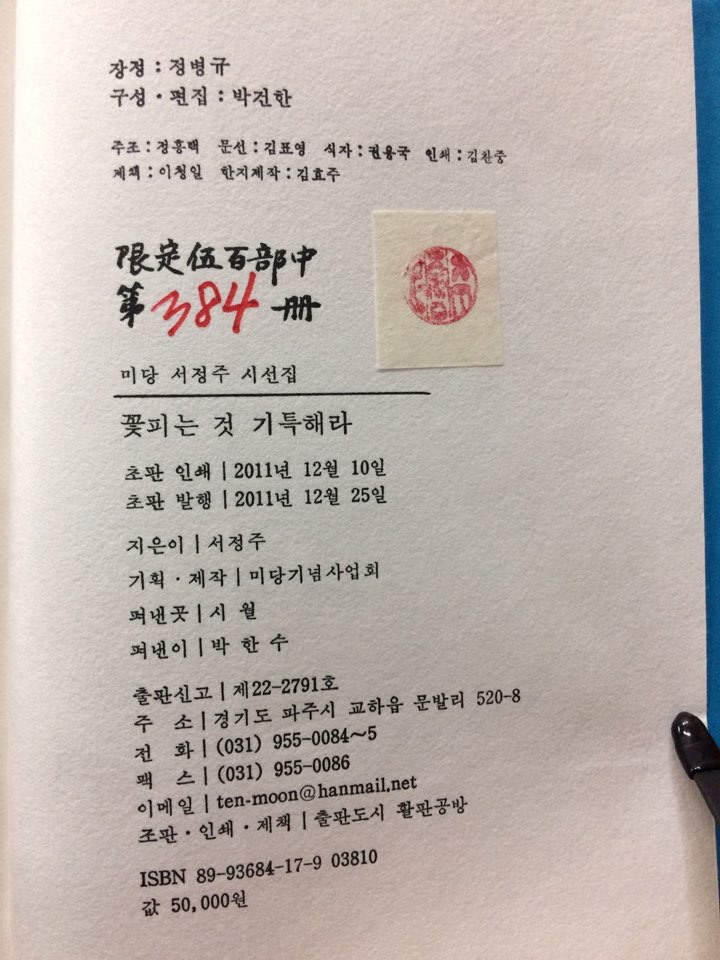 장정 : 정병규
구성 · 편집 : 박건한
주조 : 정흥택 문선 : 김표영 식자 : 권용국 인쇄 : 김찬중
제책 : 이청일 한지제작 : 김효주
限定伍百部中
第384册
미당 서정주 시선집
꽃피는 것 기특해라
초판 인쇄 | 2011년 12월 10일
초판 발행 | 2011년 12월 25일
지은이 | 서정주
기획 · 제작 | 미당기념사업회
펴낸곳 | 시 월
펴낸이 | 박 한 수
출판신고 | 제22-2791호
주 소 | 경기도 파주시 교하읍 문발리 520-8
전 화 | (031) 955-0084~5
팩 스 | (031) 955-0086
이메일 | ten-moon@hanmail.net
조판 · 인쇄 · 제책 | 출판도시 활판공방
ISBN 89-93684-17-9 03810
값 50,000원